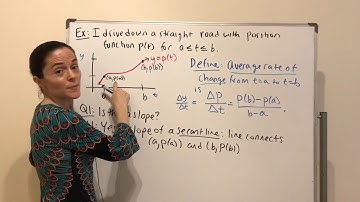 Ex: I drive down a straight road with position
function p(t) for a ≤ t ≤ b.
y
y = p(t)
(b, p(b))
(a, p(a))
b
t
Define: Average rate of
change from t=a to t=b
is
Δy/Δt = ΔP/Δt = p(b)-p(a)/b-a.
Q1: Is th slope?
Yes slope of a secant line: line connects
(a, p(a)) and (b, p(b))